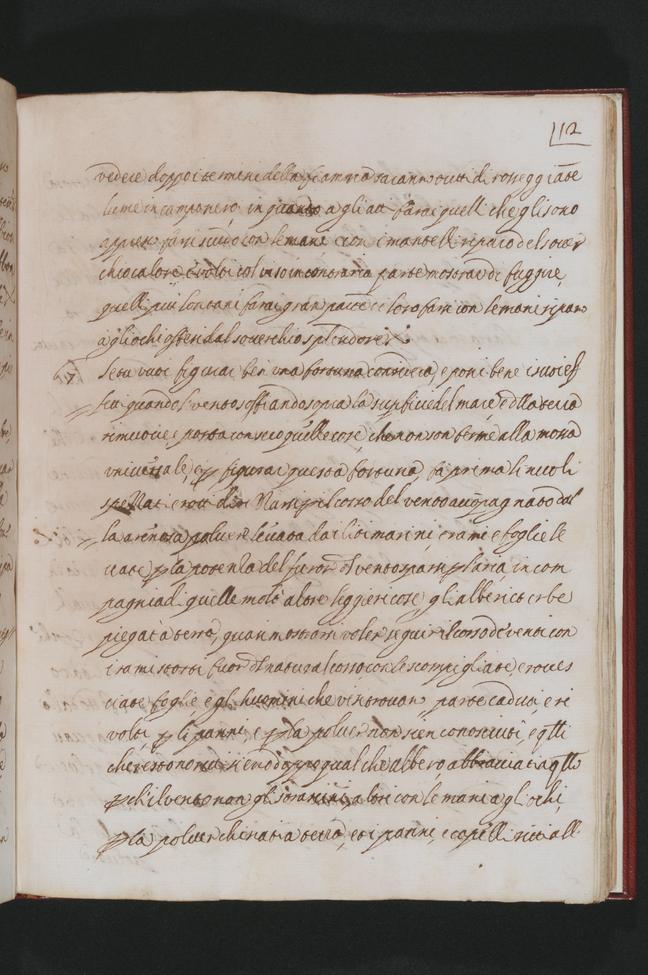 112
vedere doppo i termini della fiamma saranno tutti di rosseggiāte
lume in campo nero, in quanto a gli atti farai quelli che gli sono
appresso farsi scudo con le mani e con i mantelli riparo del sover
chio calore e volti col viso in contraria parte mostrar di fuggire
quelli più lontani farai gran parte di loro farsi con le mani riparo
a gli ochi offesi dal soverchio splendore
Se tu vuoi figurar ben una fortuna considera, e poni bene i suoi eff
etti quando il vento soffiando sopra la superfitie del mare e della terra
rimuove e porta con seco quelle cose, che non son ferme alla massa
universale, e p figurar questa fortuna, fa prima li nuvoli
spezzati e rotti p il corso del vento accompagnato dal
la arenosa polvere levata da i liti marini, e rami e foglie le
vate p la potenza del furor del vento sparsi p l'aria in com
pagnia di quelle molte altre leggieri cose, gli alberi et erbe
piegati a terra, quasi mostrarsi voler seguir il corso de venti con
i rami storti fuor del natural corso con le scompigliate, e roves
ciate foglie e gl'huomini che vi si trovan, parte caduti, e ri
volti p li panni, e p la polver non sien conosciuti, e q̄lli
che restono ritti sieno doppo qualche albero abbracciati a q̄llo
p ch'il vento non gli strascini, altri con le mani a gl'ochi,
p la polver chinati a terra, et i panni, e capelli ritti all